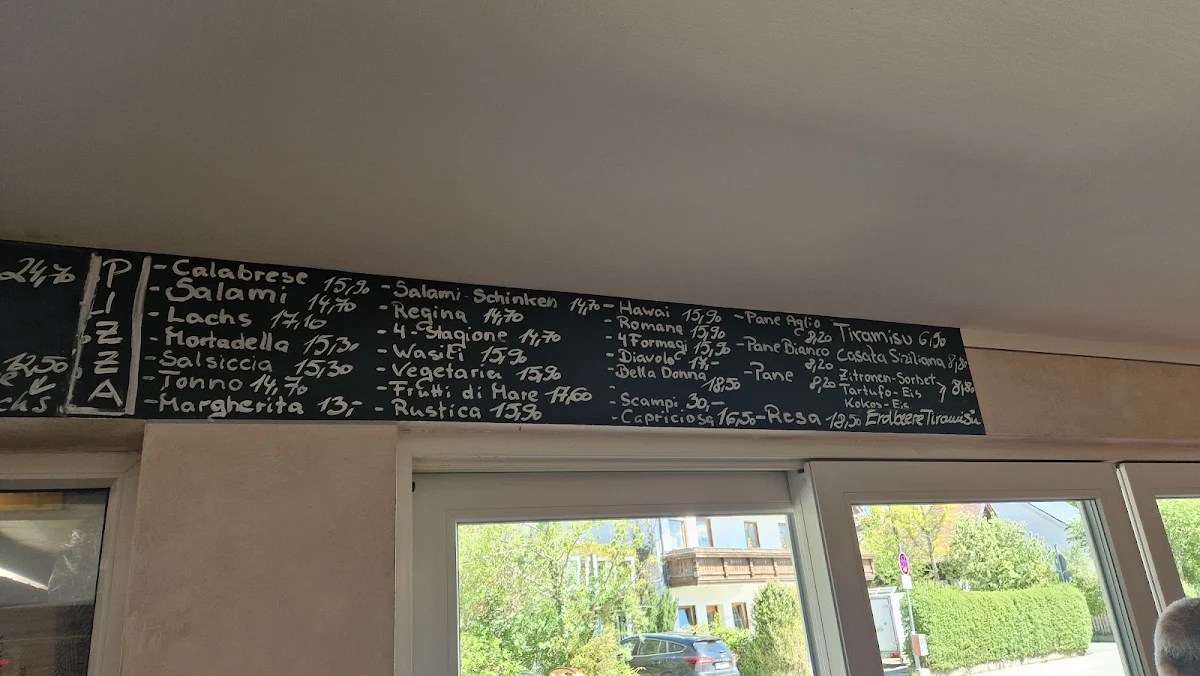 24,70
12,50
P
I
Z
Z
A
- Calabrese 15,90
- Salami 14,70
- Lachs 17,10
- Mortadella 15,30
- Salsiccia 15,30
- Tonno 14,70
- Margherita 13,-
- Salami-Schinken 14,70
- Regina 14,70
- 4 Stagione 14,70
- Wasiti 15,90
- Vegetaria 15,90
- Frutti di Mare 17,60
- Rustica 15,90
- Hawai 15,90
- Romana 15,90
- 4 Formagi 15,90
- Diavolo 17,-
- Bella Donna 18,50
- Scampi 30,-
- Capriciosa 16,50
- Pane Aglio 8,20
- Pane Bianco 8,20
- Pane 8,20
- Resa 18,50
Tiramisu 6,90
Casata Siziliana 8,80
Zitronen-Sorbet
Tartufo-Eis 8,80
Kokos-Eis
Erdbeere Tiramisu